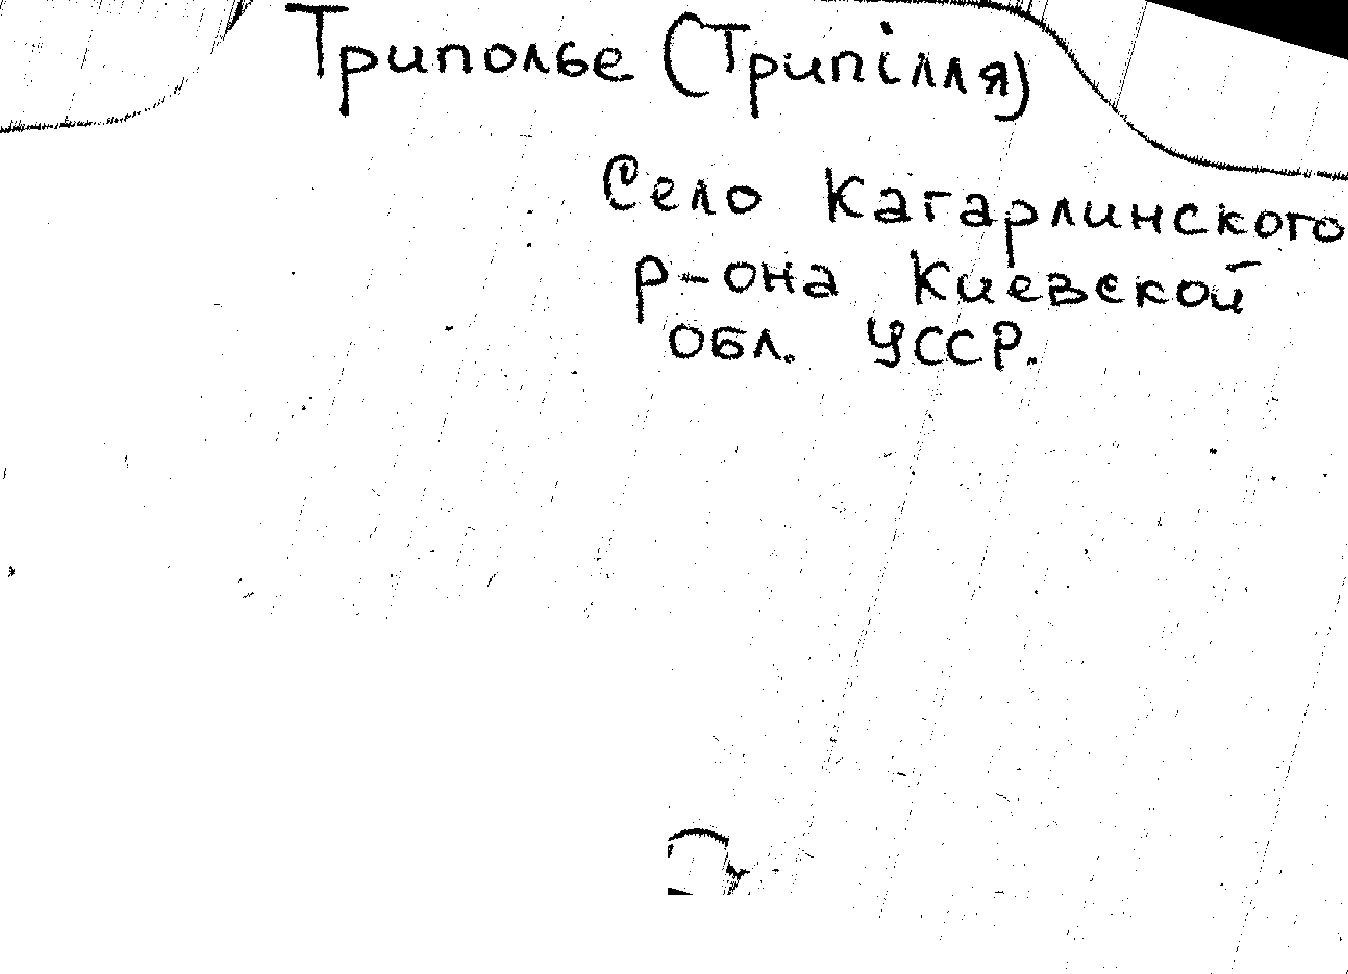 Триполье (Трипілля)
Село Кагарлинского
р-она Киевской
обл. УССР.